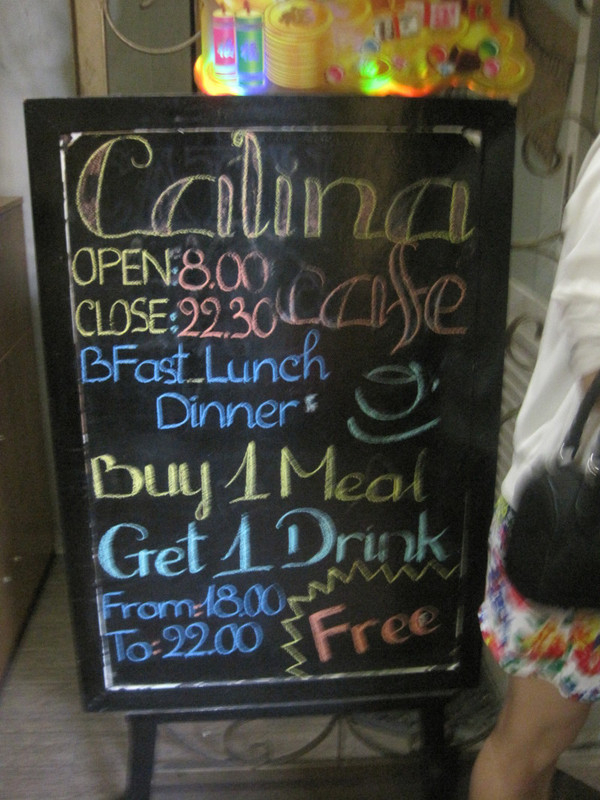 Calina
OPEN:8.00
cafe
CLOSE:22.30
BFast_Lunch
Dinner
Buy 1 Meal
Get 1 Drink
From=18.00
To=22.00
Free